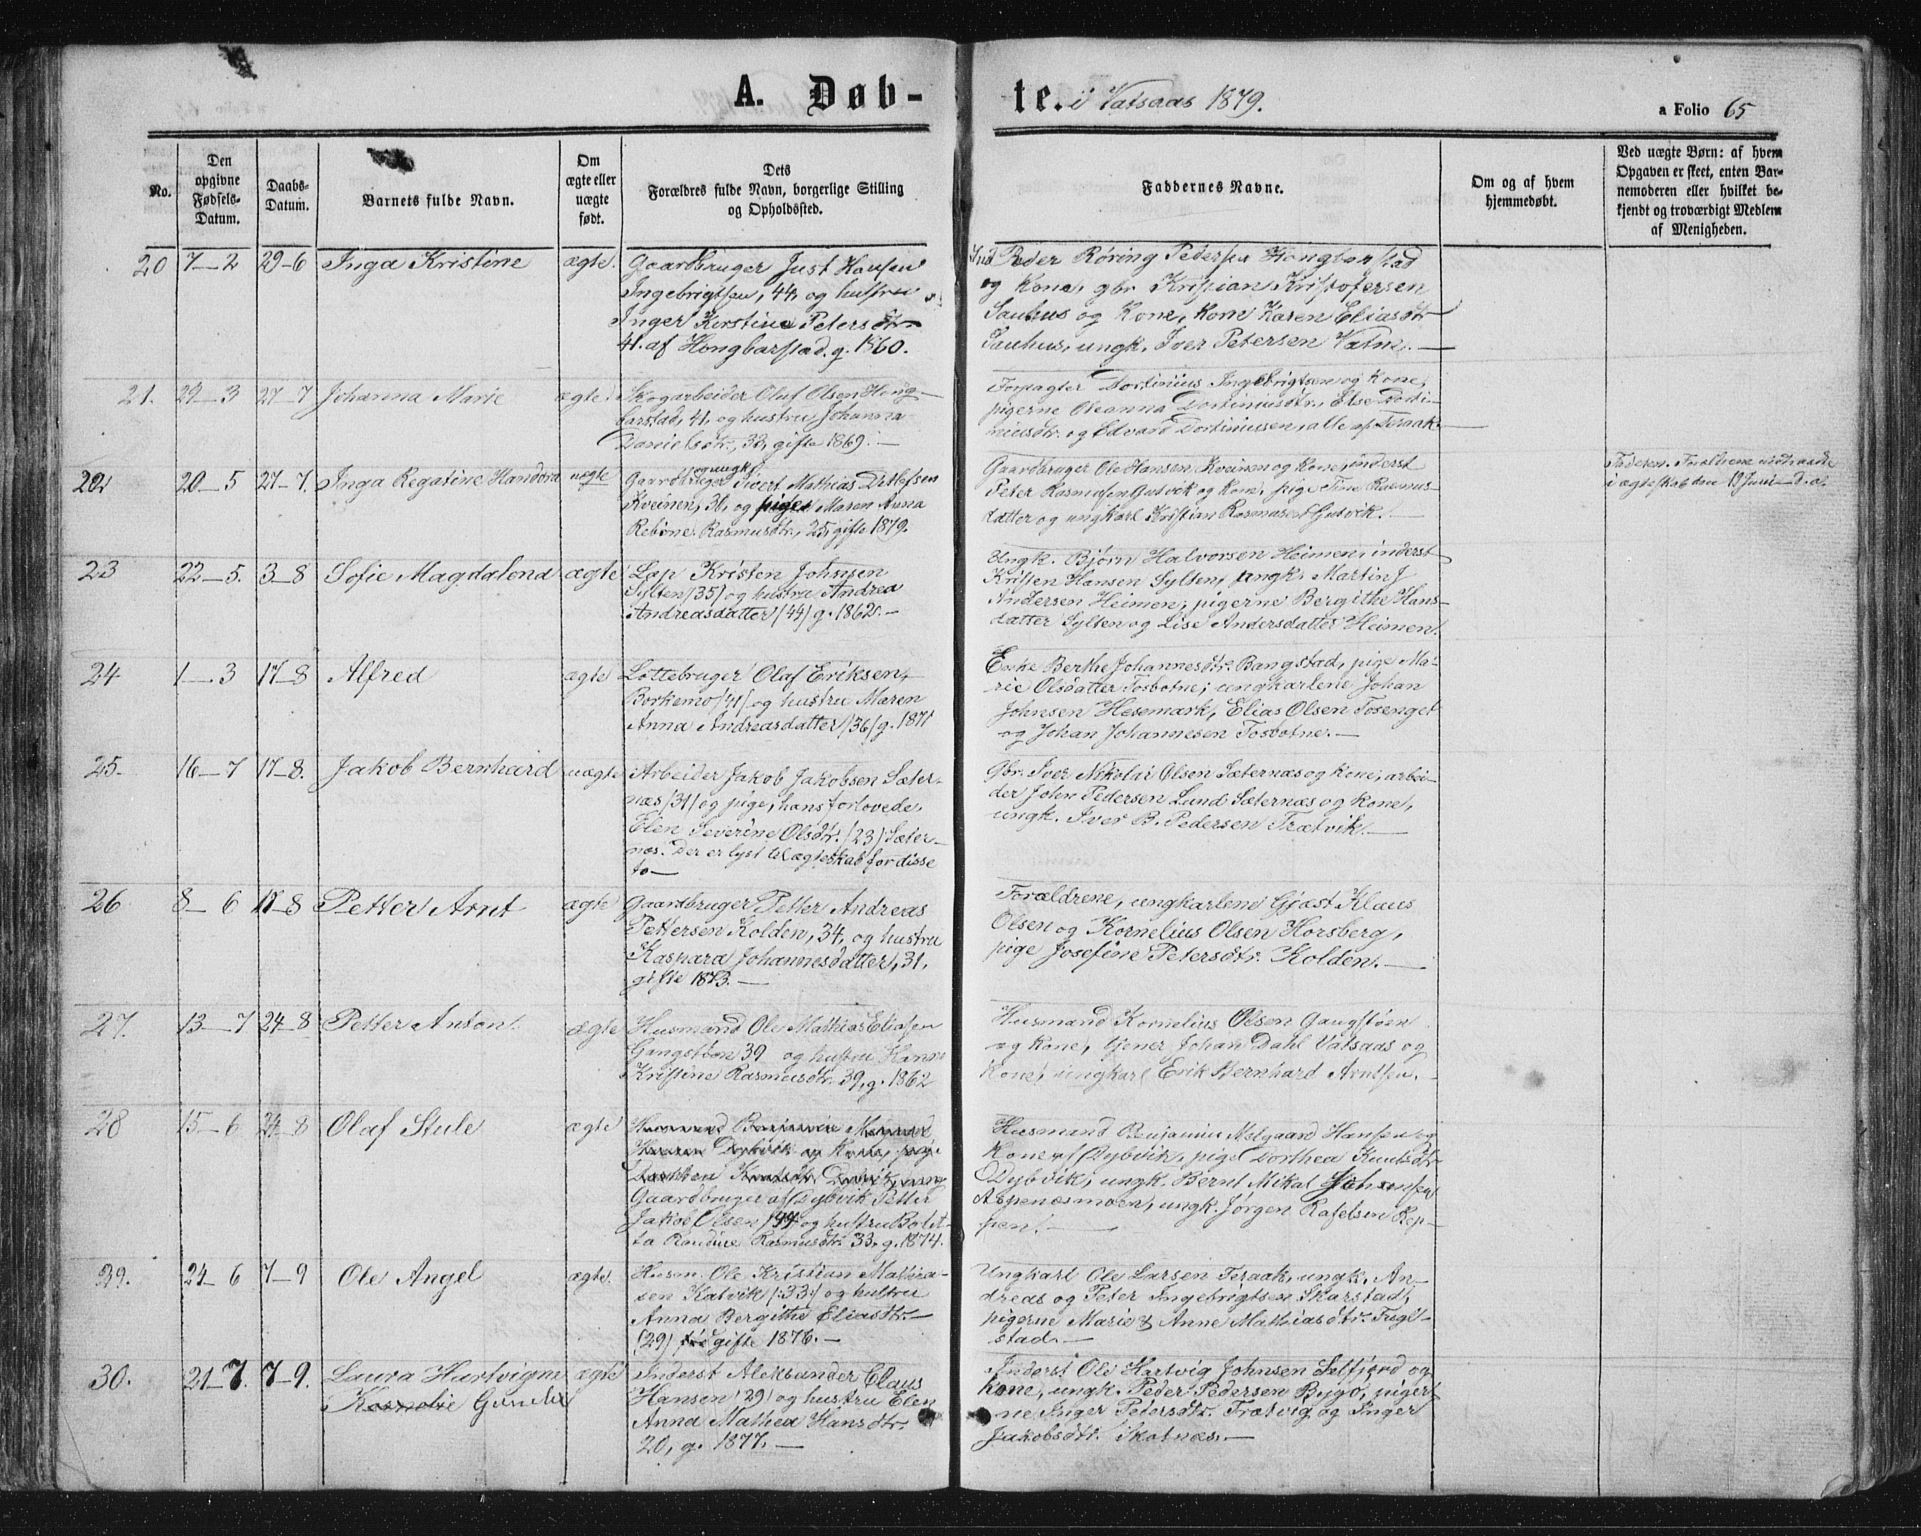 A. Døb-
te. i Vatsaas 1879.
a Folio 65
No.
Den
opgivne
Fødsels-
Datum.
Daabs-
Datum.
Barnets fulde Navn.
Om
ægte eller
uægte
født.
Dets
Forældres fulde Navn, borgerlige Stilling
og Opholdssted.
Faddernes Navne.
Om og af hvem
hjemmedøbt.
Ved uægte Børn: af hvem
Opgaven er skeet, enten Bar-
nemoderen eller hvilket be-
kjendt og troværdigt Medlem
af Menigheden.
20 7–2 29–6 Inga Kristine ægte.
Gaardbruger Just Hansen
Ingebrigtsen, 44, og hustru
Inger Kirstine Petersdtr.
41. af Hongbarstad. g. 1860.
Peder Röring Pedersen Hongbarstad
og kone, gbr. Kristian Kristofersen
Sauhus og Kone, kone Karen Eliasdtr
Sauhus, ungk. Iver Petersen Vatne.—
21. 29–3 27–7 Johanna Marie ægte
Skogarbeider Oluf Olsen Hong-
barstad, 41, og hustru Johanna
Danielsdtr., 33, gifte 1869.—
Forpagter Dortinius Ingebrigtsen og kone,
pigerne Oleanna Dortiniusdtr., Else Dorti-
niusdtr. og Edvard Dortiniussen, alle af Teraak.
22. 20–5 27–7. Inga Regatine Handora uægte
og ungk.
Gaardbruger Sivert Mathias Detlefsen
Kveinen, 36, og pige Maren Anna
Rebine Rasmusdtr., 25, gifte 1879.
Gaardbruger Ole Hansen Kveinen og kone, inderst
Peter Rasmusen Gutvik og kone, pige Tine Rasmus-
datter og ungkarl Kristian Rasmusen Gutvik.
Faderen. Forældrene indtraadte
i ægteskab den 19 Juni d.a.
23 22–5. 3–8 Sofie Magdalena ægte
Lap Kristen Johnsen
Sylten (35) og hustru Andrea
Andreasdatter (44) g. 1862.—
Ungk. Bjørn Halvorsen Heimen, inderst
Kristen Hansen Sylten, ungk. Martin J
Andersen Heimen, pigerne Bergithe Hans-
datter Sylten og Lise Andersdatter Heimen.
24 1–3 17–8 Alfred ægte
Lottebruger Olaf Eriksen,
Borkemo (41) og hustru Maren
Anna Andreasdatter (36) g. 1871
Enke Berthe Johannesdtr. Bangstad, pige Ma-
rie Olsdatter Tosbotne; ungkarlene Johan
Johnsen Hesemark, Elias Olsen Tosenget
og Johan Johannesen Tosbotne.—
25. 16–7 17–8. Jakob Bernhard uægte
Arbeider Jakob Jakobsen Sæter-
næs (31) og pige, hans forlovede,
Elen Severine Olsdtr. (23) Sæter-
næs. Der er lyst til ægteskab for disse
to—
Gbr. Iver Nikolai Olsen Sæternæs og kone, arbei-
der John Pedersen Lund Sæternæs og kone,
ungk. Iver B. Pedersen Trætvik.—
26 8–6 17–8 Petter Arnt ægte
Gaardbruger Petter Andreas
Pettersen Kolden, 34, og hustru
Kaspara Johannesdatter, 31,
gifte 1873.—
Forældrene, ungkarlene Gjøst Klaus
Olsen og Kornelius Olsen Horsberg,
pige Josefine Petersdtr. Kolden.—
27. 13–7 24–8 Petter Anton. ægte
Husmand Ole Mathias Eliasen
Gangstøen 39 og hustru Hanna
Kristine Rasmusdtr. 39, g. 1862
Husmand Kornelius Olsen Gangstøen
og kone, tjener Johan Dahl Vatsaas og
kone, ungkarl Erik Bernhard Arntsen.
28 15–6 24–8 Olaf Stule ægte
Gaardbruger af Dybvik Petter
Jakob Olsen (44) og hustru Bolet-
ta Randine Rasmusdtr. 33. g. 1874.
Husmand Benjamin Melgaard Hansen og
kone af Dybvik, pige Dorthea Knutsdtr
Dybvik, ungk. Bernt Mikal Johansen
Aspenesmoen, ungk. Jørgen Rafelsen Rep-
pen.—
29. 24–6 7–9 Ole Angel ægte.
Husm. Ole Kristian Mathia-
sen Kalvik (:33:) og hustru
Anna Bergitha Eliasdtr.
(29) gifte 1876.—
Ungkarl Ole Larsen Teraak, ungk. An-
dreas og Peter Ingebrigtsen Skarstad,
pigerne Marie & Anne Mathiasdtr. Fugl-
stad.—
30. 21–7. 7–9. Laura Hartvigine ægte
Kornelie Gurine
Inderst Aleksander Claus
Hansen (29) og hustru Elen
Anna Mathea Hansdtr.
20, g. 1877.—
Inderst Ole Hartvig Johnsen Selfjord og
kone, ungk. Peder Pedersen Bygö, piger-
ne Inger Petersdtr. Trætvig og Inger
Jakobsdtr. Skotnæs.—